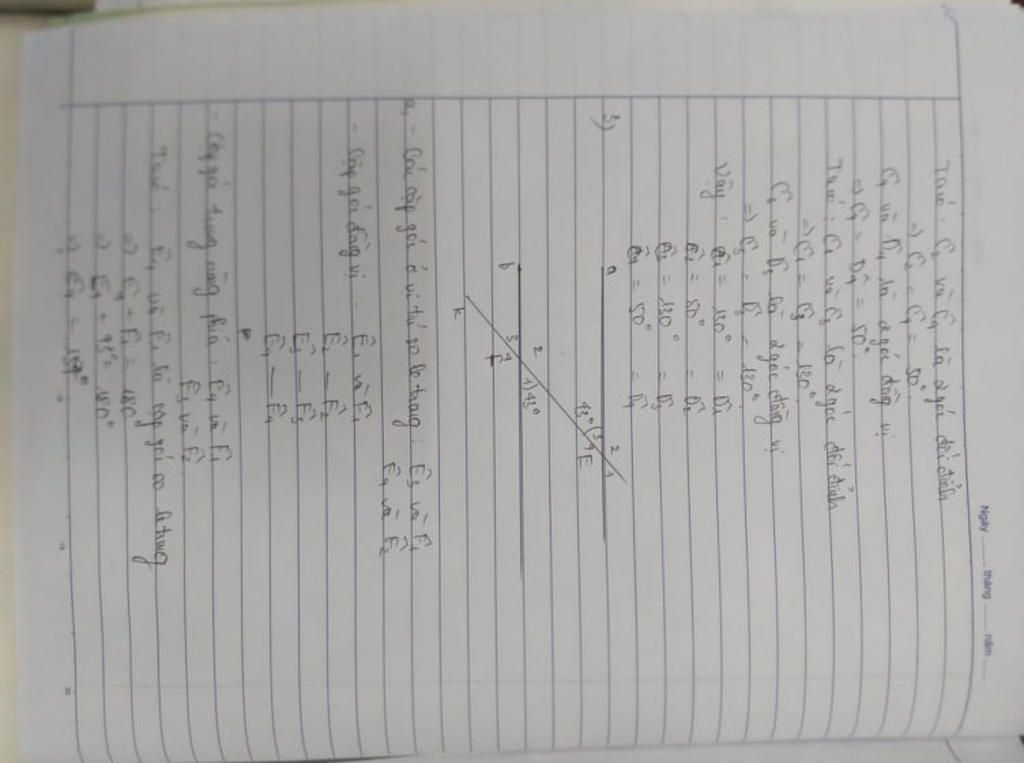 Ngày ___ tháng ___ năm ___
Ta có: Ĉ₂ và Ĉ₄ là 2 góc đối đỉnh
=> Ĉ₂ = Ĉ₄ = 50°
Ĉ₄ và D̂₄ là 2 góc đồng vị
=> Ĉ₄ = D̂₄ = 50°
Ta có: Ĉ₁ và Ĉ₃ là 2 góc đối đỉnh
=> Ĉ₁ = Ĉ₃ = 130°
Ĉ₃ và D̂₃ là 2 góc đồng vị
=> Ĉ₃ = D̂₃ = 130°
Vậy: Ĉ₁ = 130° = D̂₁
Ĉ₂ = 50° = D̂₂
Ĉ₃ = 130° = D̂₃
Ĉ₄ = 50° = D̂₄
3)
a
2
1
43° 3
4 E
b
2
1) 43°
3
4
F
k
a, - Các cặp góc ở vị trí so le trong: Ê₃ và F̂₁
Ê₄ và F̂₂
- Cặp góc đồng vị: Ê₁ và F̂₁
Ê₂ và F̂₂
Ê₃ — F̂₃
Ê₄ — F̂₄
- Cặp góc trong cùng phía: Ê₄ và F̂₁
Ê₃ và F̂₂
Ta có: Ê₄ và F̂₁ là cặp góc so le trong
=> Ê₄ + F̂₁ = 180°
=> Ê₄ + 43° = 180°
=> Ê₄ = 137°